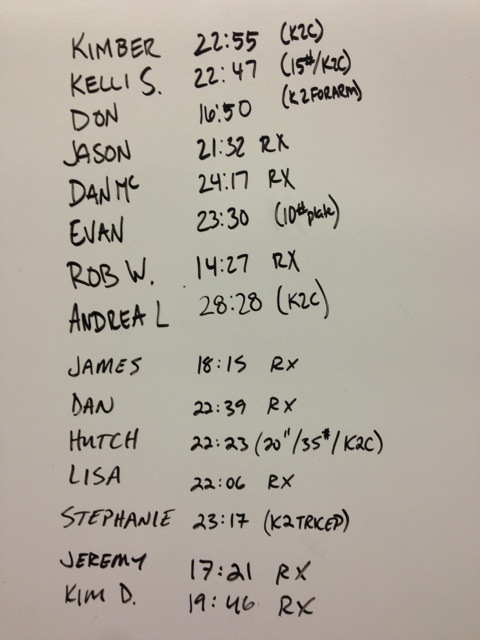 KIMBER 22:55 (K2C)
KELLI S. 22:47 (15#/K2C)
DON 16:50 (K2FORARM)
JASON 21:32 RX
DAN MC 24:17 RX
EVAN 23:30 (10# plate)
ROB W. 14:27 RX
ANDREA L 28:28 (K2C)
JAMES 18:15 RX
DAN 22:39 RX
HUTCH 22:23 (20"/35#/K2C)
LISA 22:06 RX
STEPHANIE 23:17 (K2TRICEP)
JEREMY 17:21 RX
KIM D. 19:46 RX